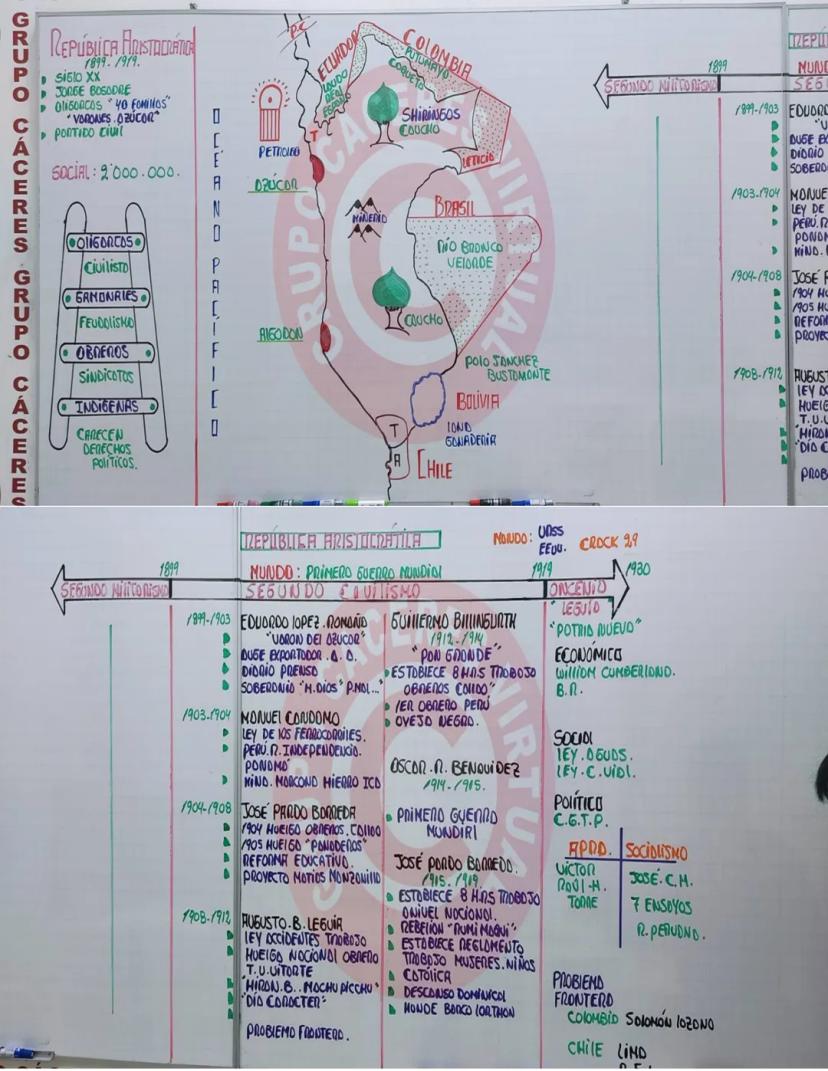 GRUPO CÁCERES GRUPO CÁCERES
REPÚBLICA ARISTOCRÁTICA
1899-1919.
SIGLO XX
JORGE BASADRE
OLIGARCAS "40 FAMILIAS"
"VARONES.AZÚCAR"
PARTIDO CIVIL
SOCIAL: 2'000.000.
OLIGARCAS
CIVILISTA
GAMONALES
FEUDALISMO
OBREROS
SINDICATOS
INDÍGENAS
CARECEN
DERECHOS
POLÍTICOS.
OCÉANO PACÍFICO
P.C
ECUADOR
COLOMBIA
PUTUMAYO
CAQUETA
LAUDO
REAL
ESPAÑA
SHIRINGAS
CAUCHO
T
LETICIA
PETROLEO
AZÚCAR
MINERIA
BRASIL
RÍO BRANCO
VELARDE
CAUCHO
ALGODON
POLO SANCHEZ
BUSTAMANTE
BOLÍVIA
LANA
GANADERIA
T
A
CHILE
GRUPO CÁCERES VIRTUAL
1899
SEGUNDO MILITARISMO
REPÚ
MUND
SEG
1899-1903
EDUARD
"V
AUGE EX
DIARIO
SOBERA
1903-1904
MANUE
LEY DE
PERÚ.R
PANAM
MINA.
1904-1908
JOSÉ P
1904 HU
1905 HU
REFORM
PROYE
1908-1912
AUGUST
LEY A
HUELG
T.U.
"HIRAM
"DIA C
PROB
REPÚBLICA ARISTOCRÁTICA
MUNDO: URSS
EEUU. CRACK 29
1899
MUNDO: PRIMERA GUERRA MUNDIAL
1919
1930
SEGUNDO MILITARISMO
SEGUNDO CIVILISMO
ONCENIO
LEGUÍA
"PATRIA NUEVA"
1899-1903
EDUARDO LOPEZ.ROMAÑA
"VARON DEL AZUCAR"
AUGE EXPORTADOR.A.A.
DIARIO PRENSA
SOBERANIA "M.DIOS" P.MAL..."
1903-1904
MANUEL CANDAMO
LEY DE LOS FERROCARRILES.
PERÚ.R.INDEPENDENCIA.
PANAMÁ
MINA.MARCONA HIERRO ICA
1904-1908
JOSÉ PARDO BARREDA
1904 HUELGA OBREROS.CALLAO
1905 HUELGA "PANADEROS"
REFORMA EDUCATIVA.
PROYECTO MATIAS MANZANILLA
1908-1912
AUGUSTO.B.LEGUIA
LEY ACCIDENTES TRABAJO
HUELGA NACIONAL OBRERO
T.U.VITARTE
"HIRAM.B.. MACHU PICCHU"
"DIA CARACTER"
PROBLEMA FRONTERA.
GUILLERMO BILLINGURTH
1912-1914
"PAN GRANDE"
ESTABLECE 8 HRS TRABAJO
OBREROS CALLAO"
1ER OBRERO PERÚ
OVEJA NEGRA.
OSCAR.R.BENAVIDEZ
1914-1915.
PRIMERA GUERRA
MUNDIAL
JOSÉ PARDO BARREDA.
1915.-1919.
ESTABLECE 8 HRS TRABAJO
ANIVEL NACIONAL.
REBELION "RUMI MAQUI"
ESTABLECE REGLAMENTO
TRABAJO MUJERES.NIÑOS
CATÓLICA
DESCANSO DOMINICAL
HUNDE BARCO LORTHON
ECONÓMICO
WILLIAM CUMBERLAND.
B.R.
SOCIAL
LEY.AGUAS.
LEY.C.VIAL.
POLÍTICO
C.G.T.P.
APRA.
SOCIALISMO
VÍCTOR
RAÚL.H.
TORRE
JOSÉ.C.M.
7 ENSAYOS
R.PERUANA.
PROBLEMA
FRONTERA
COLOMBIA SALOMÓN LOZANO
CHILE LIMA
GRUPO CÁCERES VIRTUAL